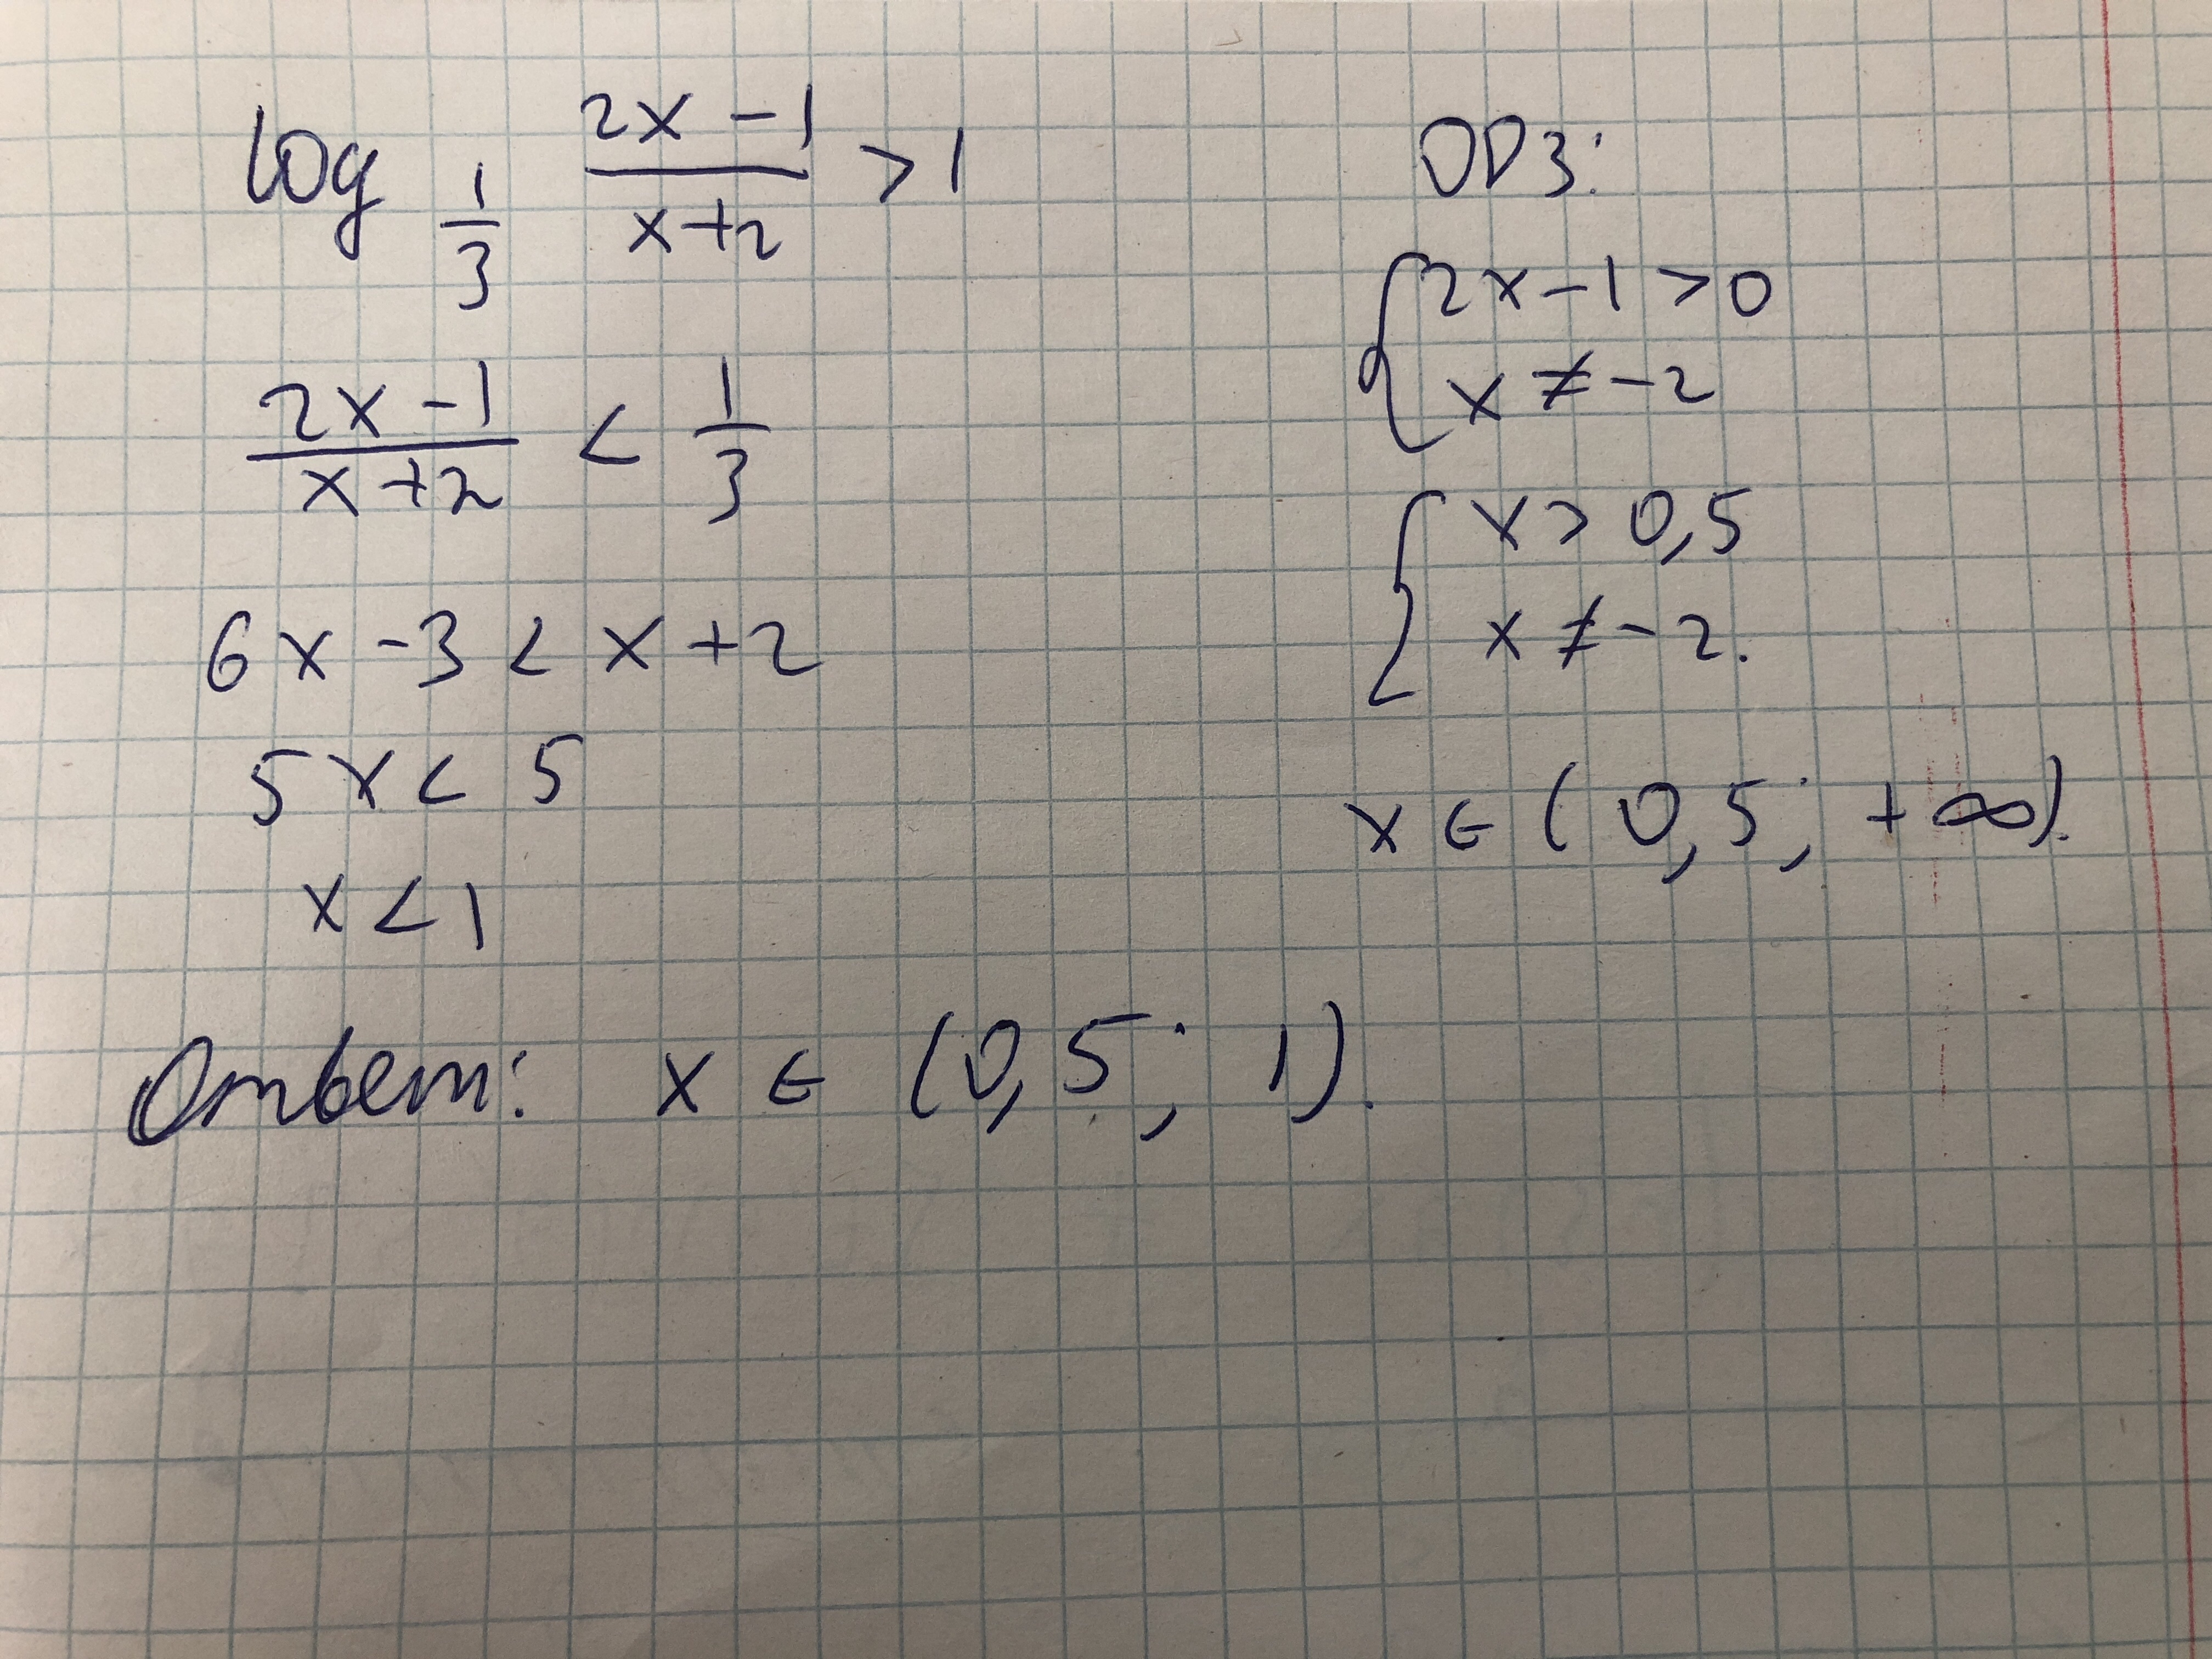 log 1/3 (2x - 1)/(x + 2) > 1
(2x - 1)/(x + 2) < 1/3
6x - 3 < x + 2
5x < 5
x < 1
ОДЗ:
{ 2x - 1 > 0
x ≠ -2
{ x > 0,5
x ≠ -2.
x ∈ (0,5; +∞).
Ответ: x ∈ (0,5; 1).